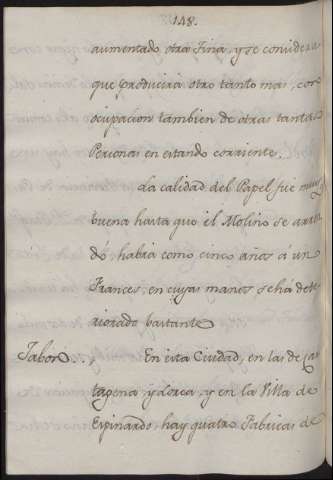 148.
aumentado otra Tina, y se considera
que producirá otro tanto mas, con
ocupacion tambien de otras tantas
Personas en estando corriente.
La calidad del Papel fué muy
buena hasta que el Molino se arren
dó, habrá como cinco años á un
Frances, en cuyas manos se há dete
riorado bastante
Jabon... En esta Ciudad, en las de Car
tagena, y Lorca, y en la Villa de
Espinardo, hay quatro Fabricas de